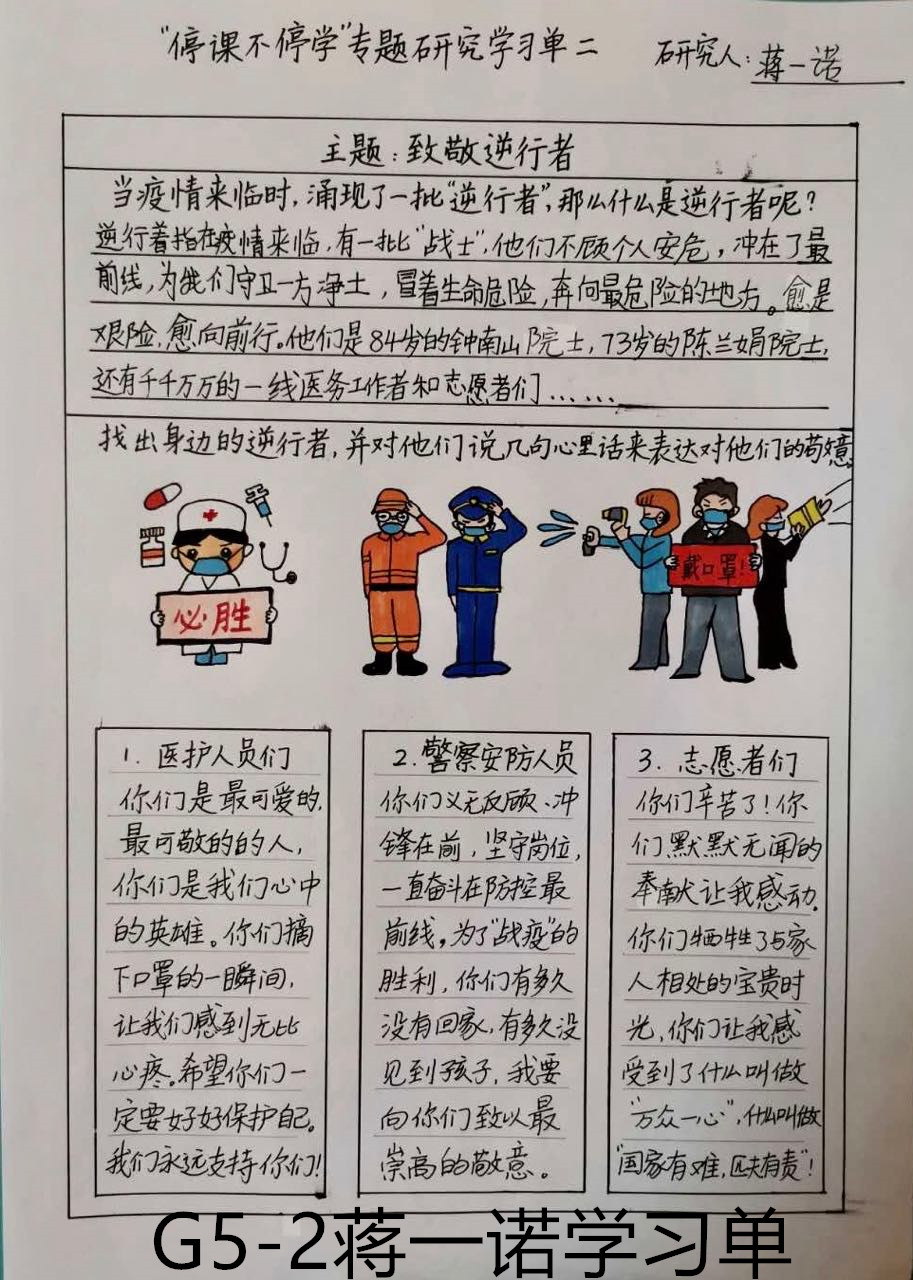 “停课不停学”专题研究学习单二
研究人：蒋一诺
主题：致敬逆行者
当疫情来临时，涌现了一批“逆行者”，那么什么是逆行者呢？
逆行者指在疫情来临，有一批“战士”，他们不顾个人安危，冲在了最
前线，为我们守卫一方净土，冒着生命危险，奔向最危险的地方。愈是
艰险，愈向前行。他们是84岁的钟南山院士，73岁的陈兰娟院士，
还有千千万万的一线医务工作者和志愿者们……
找出身边的逆行者，并对他们说几句心里话来表达对他们的敬意
必胜
戴口罩！
1. 医护人员们
你们是最可爱的，
最可敬的的人，
你们是我们心中
的英雄。你们摘
下口罩的一瞬间，
让我们感到无比
心疼。希望你们一
定要好好保护自己。
我们永远支持你们！
2. 警察安防人员
你们义无反顾、冲
锋在前，坚守岗位，
一直奋斗在防控最
前线，为了“战疫”的
胜利，你们有多久
没有回家，有多久没
见到孩子，我要
向你们致以最
崇高的敬意。
3. 志愿者们
你们辛苦了！你
们默默无闻的
奉献让我感动。
你们牺牲了与家
人相处的宝贵时
光，你们让我感
受到了什么叫做
“万众一心”，什么叫做
“国家有难，匹夫有责”！
G5-2蒋一诺学习单